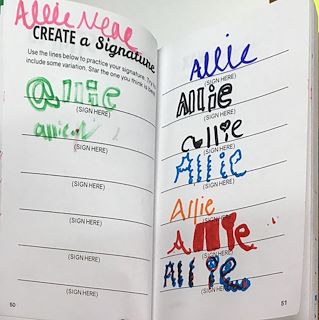 Allie Neal
CREATE a Signature
Use the lines below to practice your signature. Try to
include some variation. Star the one you think is best.
Allie
(SIGN HERE)
(SIGN HERE)
(SIGN HERE)
(SIGN HERE)
(SIGN HERE)
(SIGN HERE)
(SIGN HERE)
50
Allie
(SIGN HERE)
Allie
(SIGN HERE)
Allie
(SIGN HERE)
Allie
(SIGN HERE)
Allie
(SIGN HERE)
Allie
(SIGN HERE)
Allie
(SIGN HERE)
51